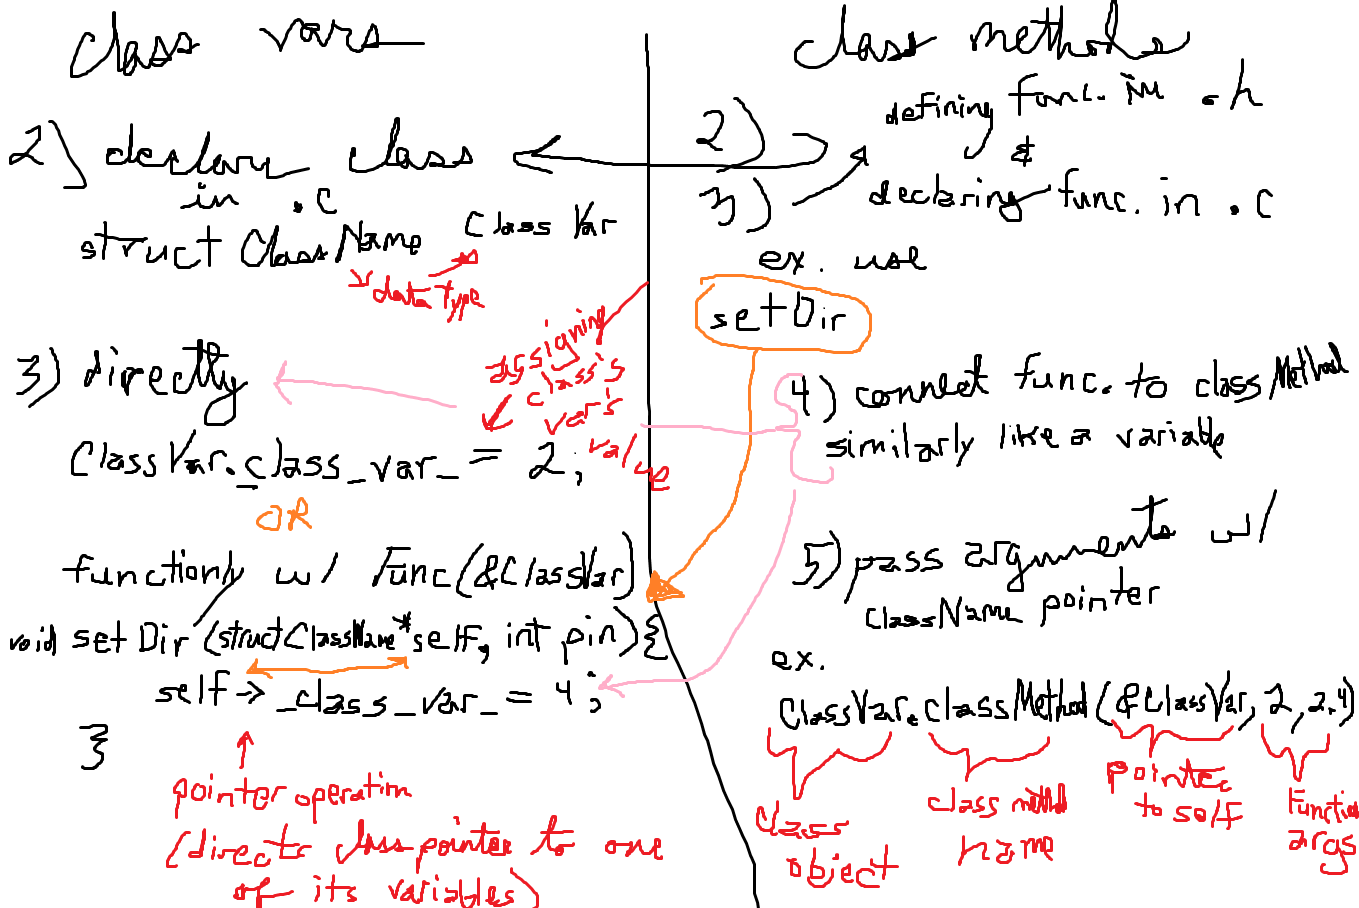 class vars
2) declare class
in .c
struct ClassName ClassVar
data type
3) directly
assigning
class's
var's
value
ClassVar.class_var_ = 2;
OR
functionly w/ Func(&ClassVar)
void setDir (struct ClassName* self, int pin) {
self -> _class_var_ = 4;
}
pointer operation
(directs class pointer to one
of its variables)
class methods
2)
3)
defining func. in .h
&
declaring func. in .c
ex. use
setDir
4) connect func. to classMethod
similarly like a variable
5) pass arguments w/
ClassName pointer
ex.
ClassVar.classMethod(&ClassVar, 2, 2.4)
class
object
class method
name
pointer
to self
Function
args